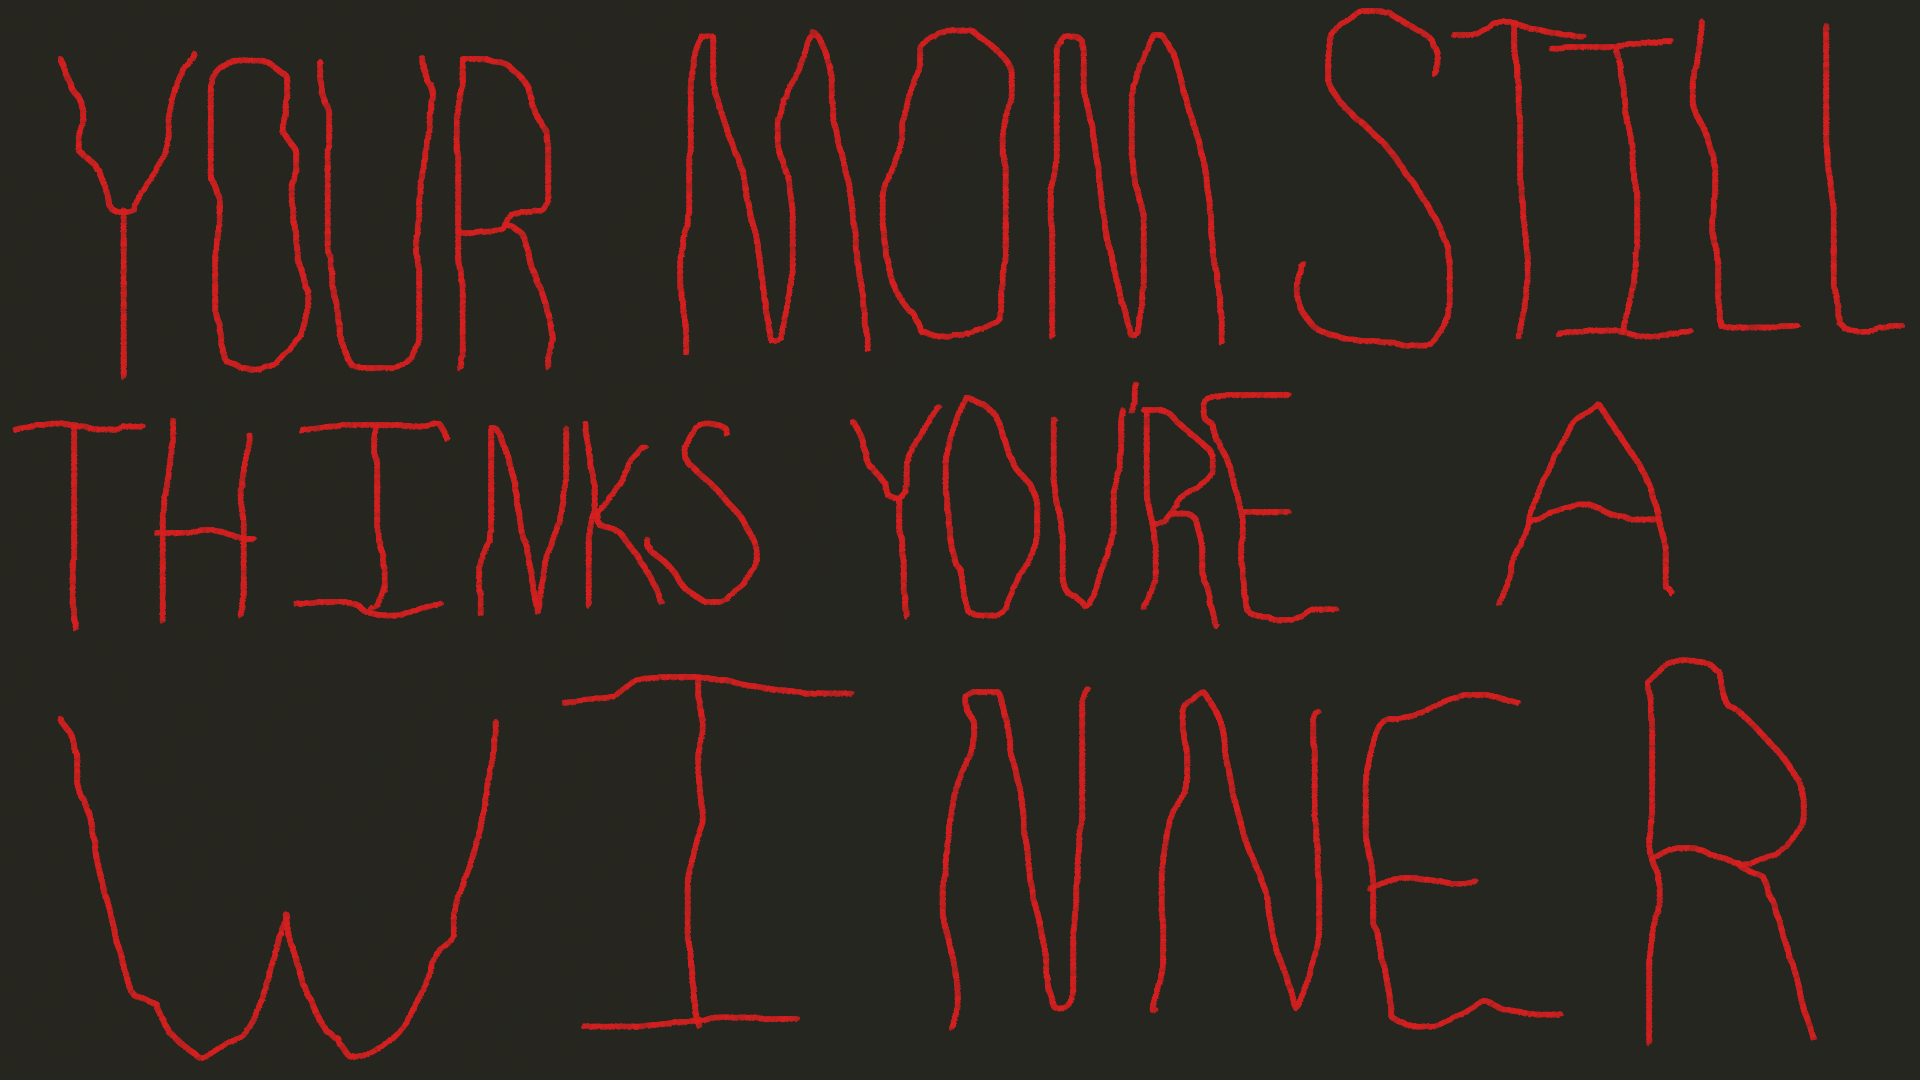 YOUR MOM STILL
THINKS YOU'RE A
WINNER